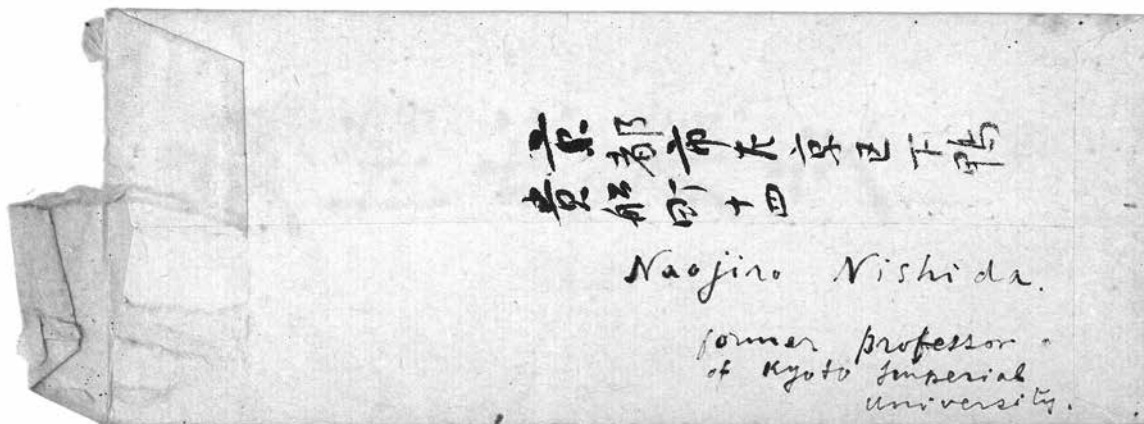 京都市左京区下鴨
貴船町十四
Naojiro Nishida.
former professor
of Kyoto Imperial
University.